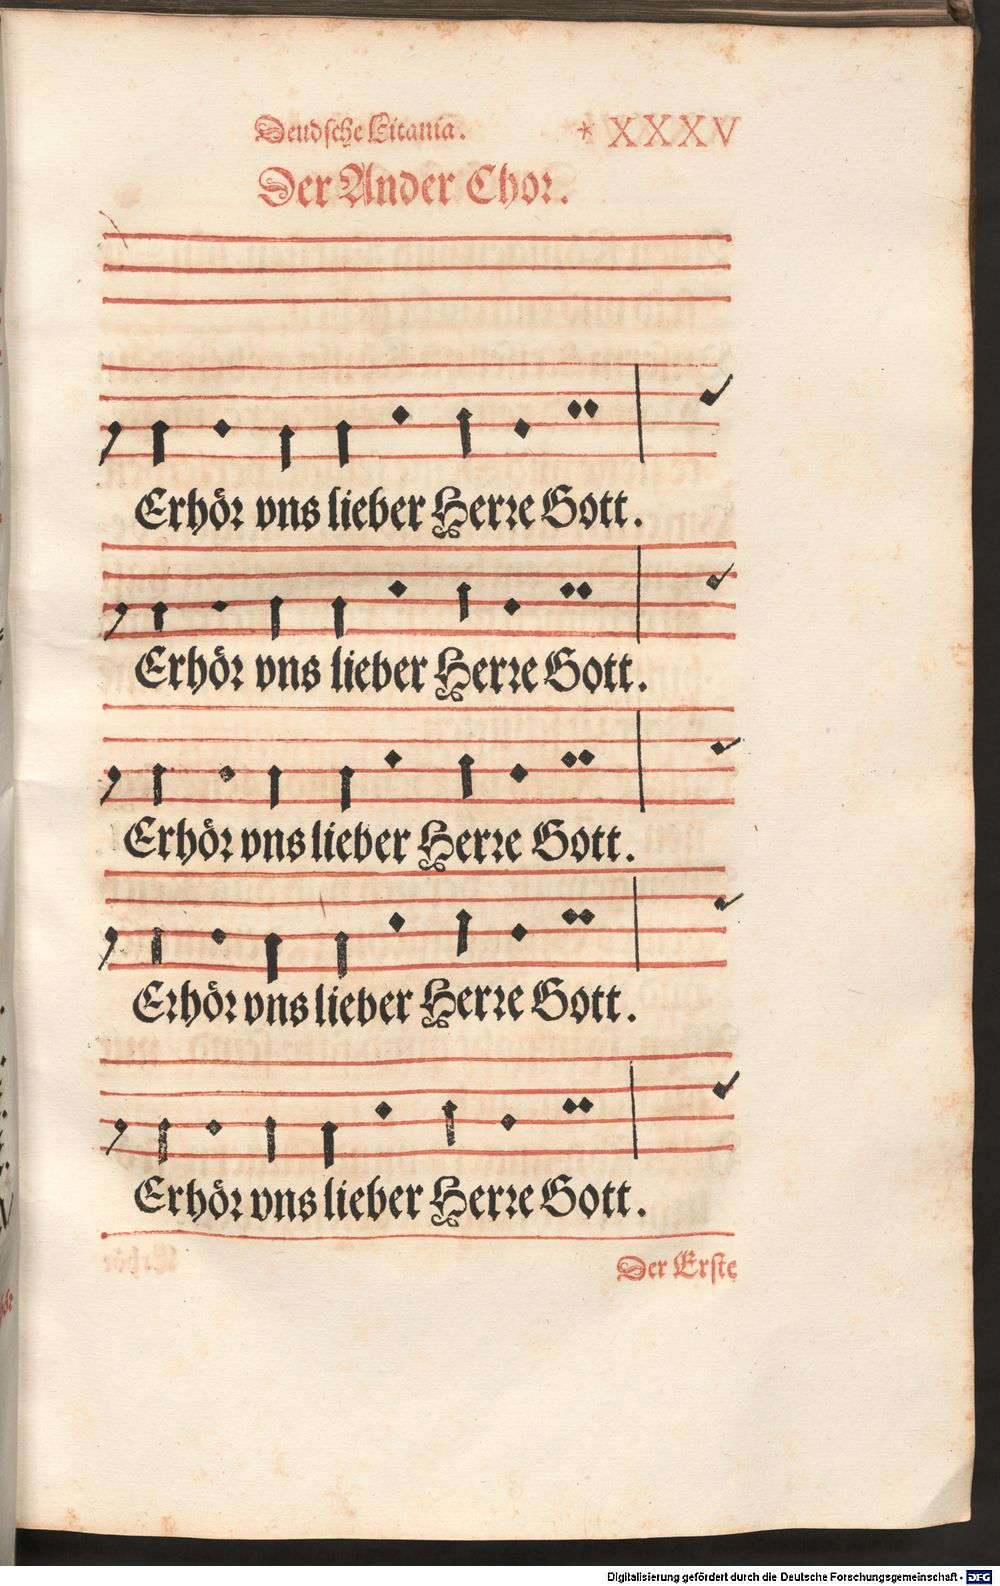 Deudsche Litania. * XXXV
Der Ander Chor.
Erhör vns lieber Herre Gott.
Erhör vns lieber Herre Gott.
Erhör vns lieber Herre Gott.
Erhör vns lieber Herre Gott.
Erhör vns lieber Herre Gott.
Der Erste
Digitalisierung gefördert durch die Deutsche Forschungsgemeinschaft - DFG